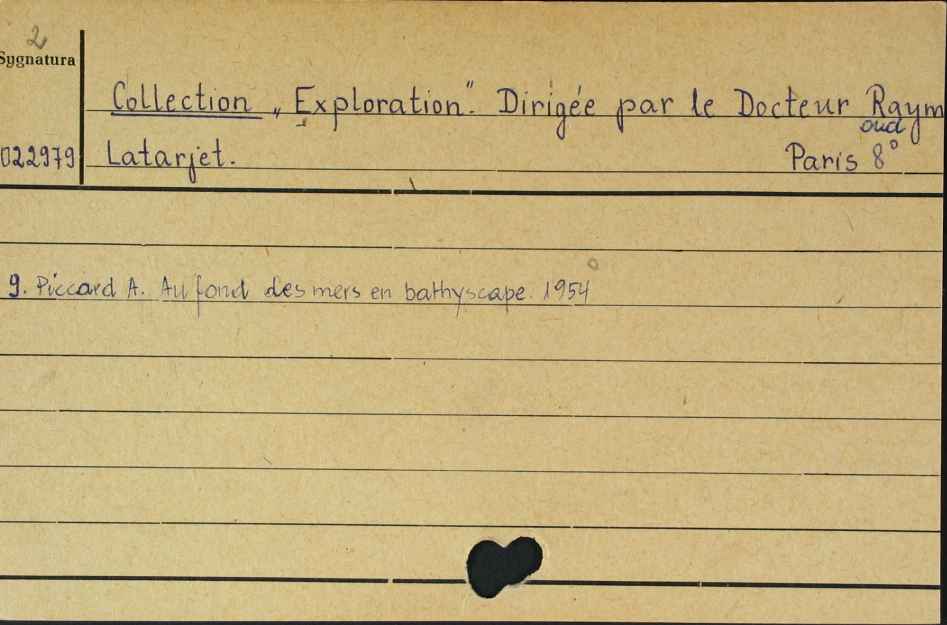 2
Sygnatura
Collection „Exploration". Dirigée par le Docteur Raym
ond
022979 Latarjet. Paris 8°
9. Piccard A. Au fond des mers en bathyscape. 1954